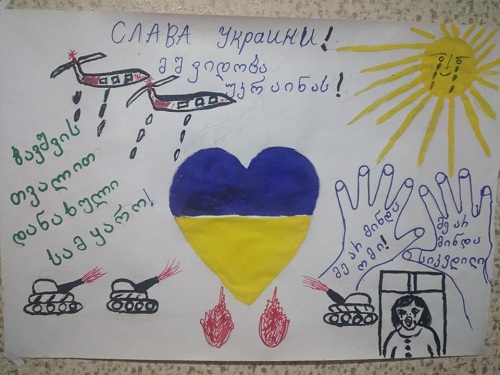 СЛАВА УКРАИНИ!
მშვიდობა
უკრაინას!
ბავშვის
თვალით
დანახული
სამყარო!
მე არ მინდა
ომი!
მე არ
მინდა
სიკვდილი